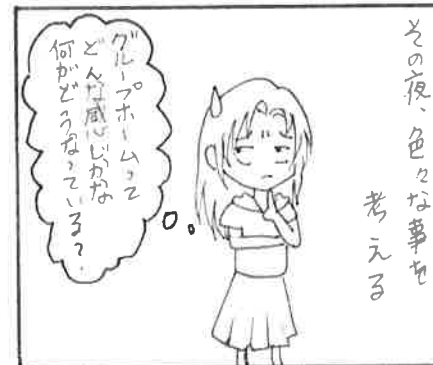 その夜、色々な事を
考える
グループホームって
どんな感じかな
何がどうなっている?